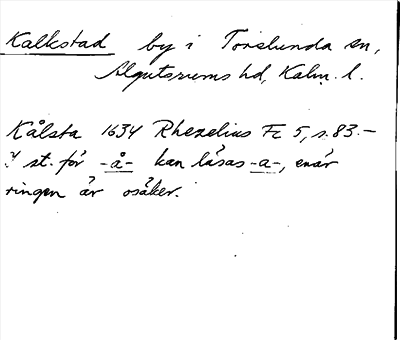 Kalkstad by i Torslunda sn,
Algutsrums hd, Kalm. l.
Kålsta 1634 Rhezelius Fc 5, s. 83. –
st. för -å- kan läsas -a-, enär
ringen är osäker.